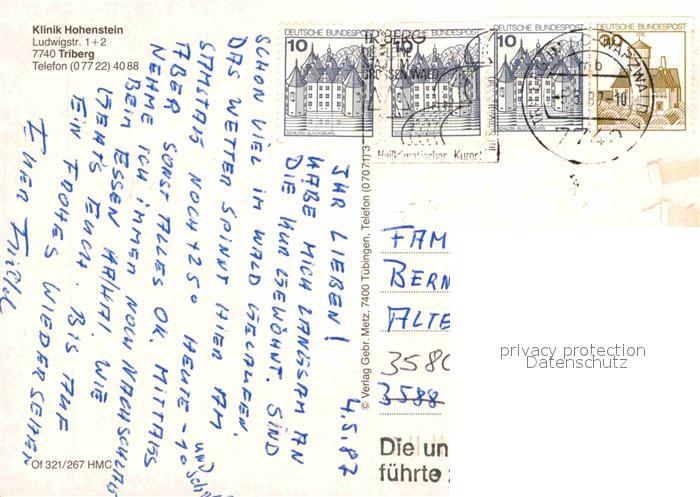 Klinik Hohenstein
Ludwigstr. 1+2
7740 Triberg
Telefon (0 77 22) 40 88
DEUTSCHE BUNDESPOST
10
SCHLOSS GLÜCKSBURG
DEUTSCHE BUNDESPOST
10
DEUTSCHE BUNDESPOST
10
SCHLOSS GLÜCKSBURG
DEUTSCHE BUNDESPOST
30
Heilklimatischer Kurort
4.5.87
IHR LIEBEN!
HABE MICH LANGSAM AN
DIE KUR GEWÖHNT. SIND
SCHON VIEL IM WALD GELAUFEN.
DAS WETTER SPINNT HIER AM
SAMSTAG NOCH +25° HEUTE -1°
UND
ABER SONST ALLES OK. MITTAGS
NEHME ICH IMMER NOCH NACHSCHLAG
BEIM ESSEN HAHA! WIE
GEHTS EUCH. BIS AUF
EIN FROHES WIEDERSEHEN
EUER
© Verlag Gebr. Metz, 7400 Tübingen, Telefon (07071) 3
FAM
BERN
ALTE
3580
3588
privacy protection
Datenschutz
Die un
führte
Of 321/267 HMC